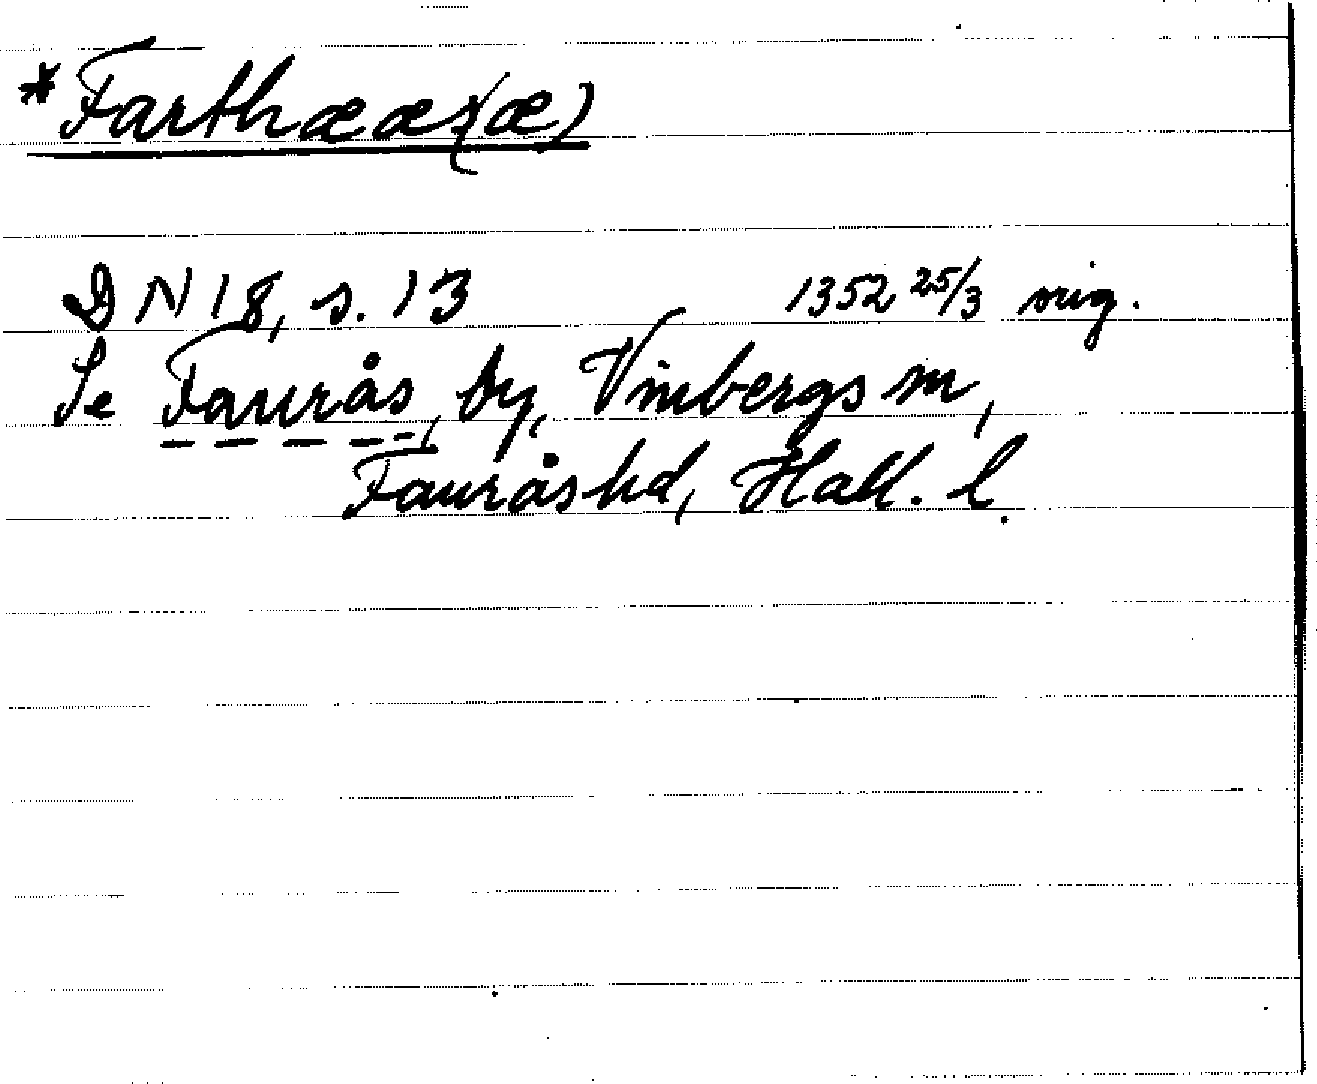 *Farthæær(æ)
DN 18, s. 13 1352 25/3 orig.
Se Faurås, by, Vinbergs sn,
Faurås hd, Hall. l.